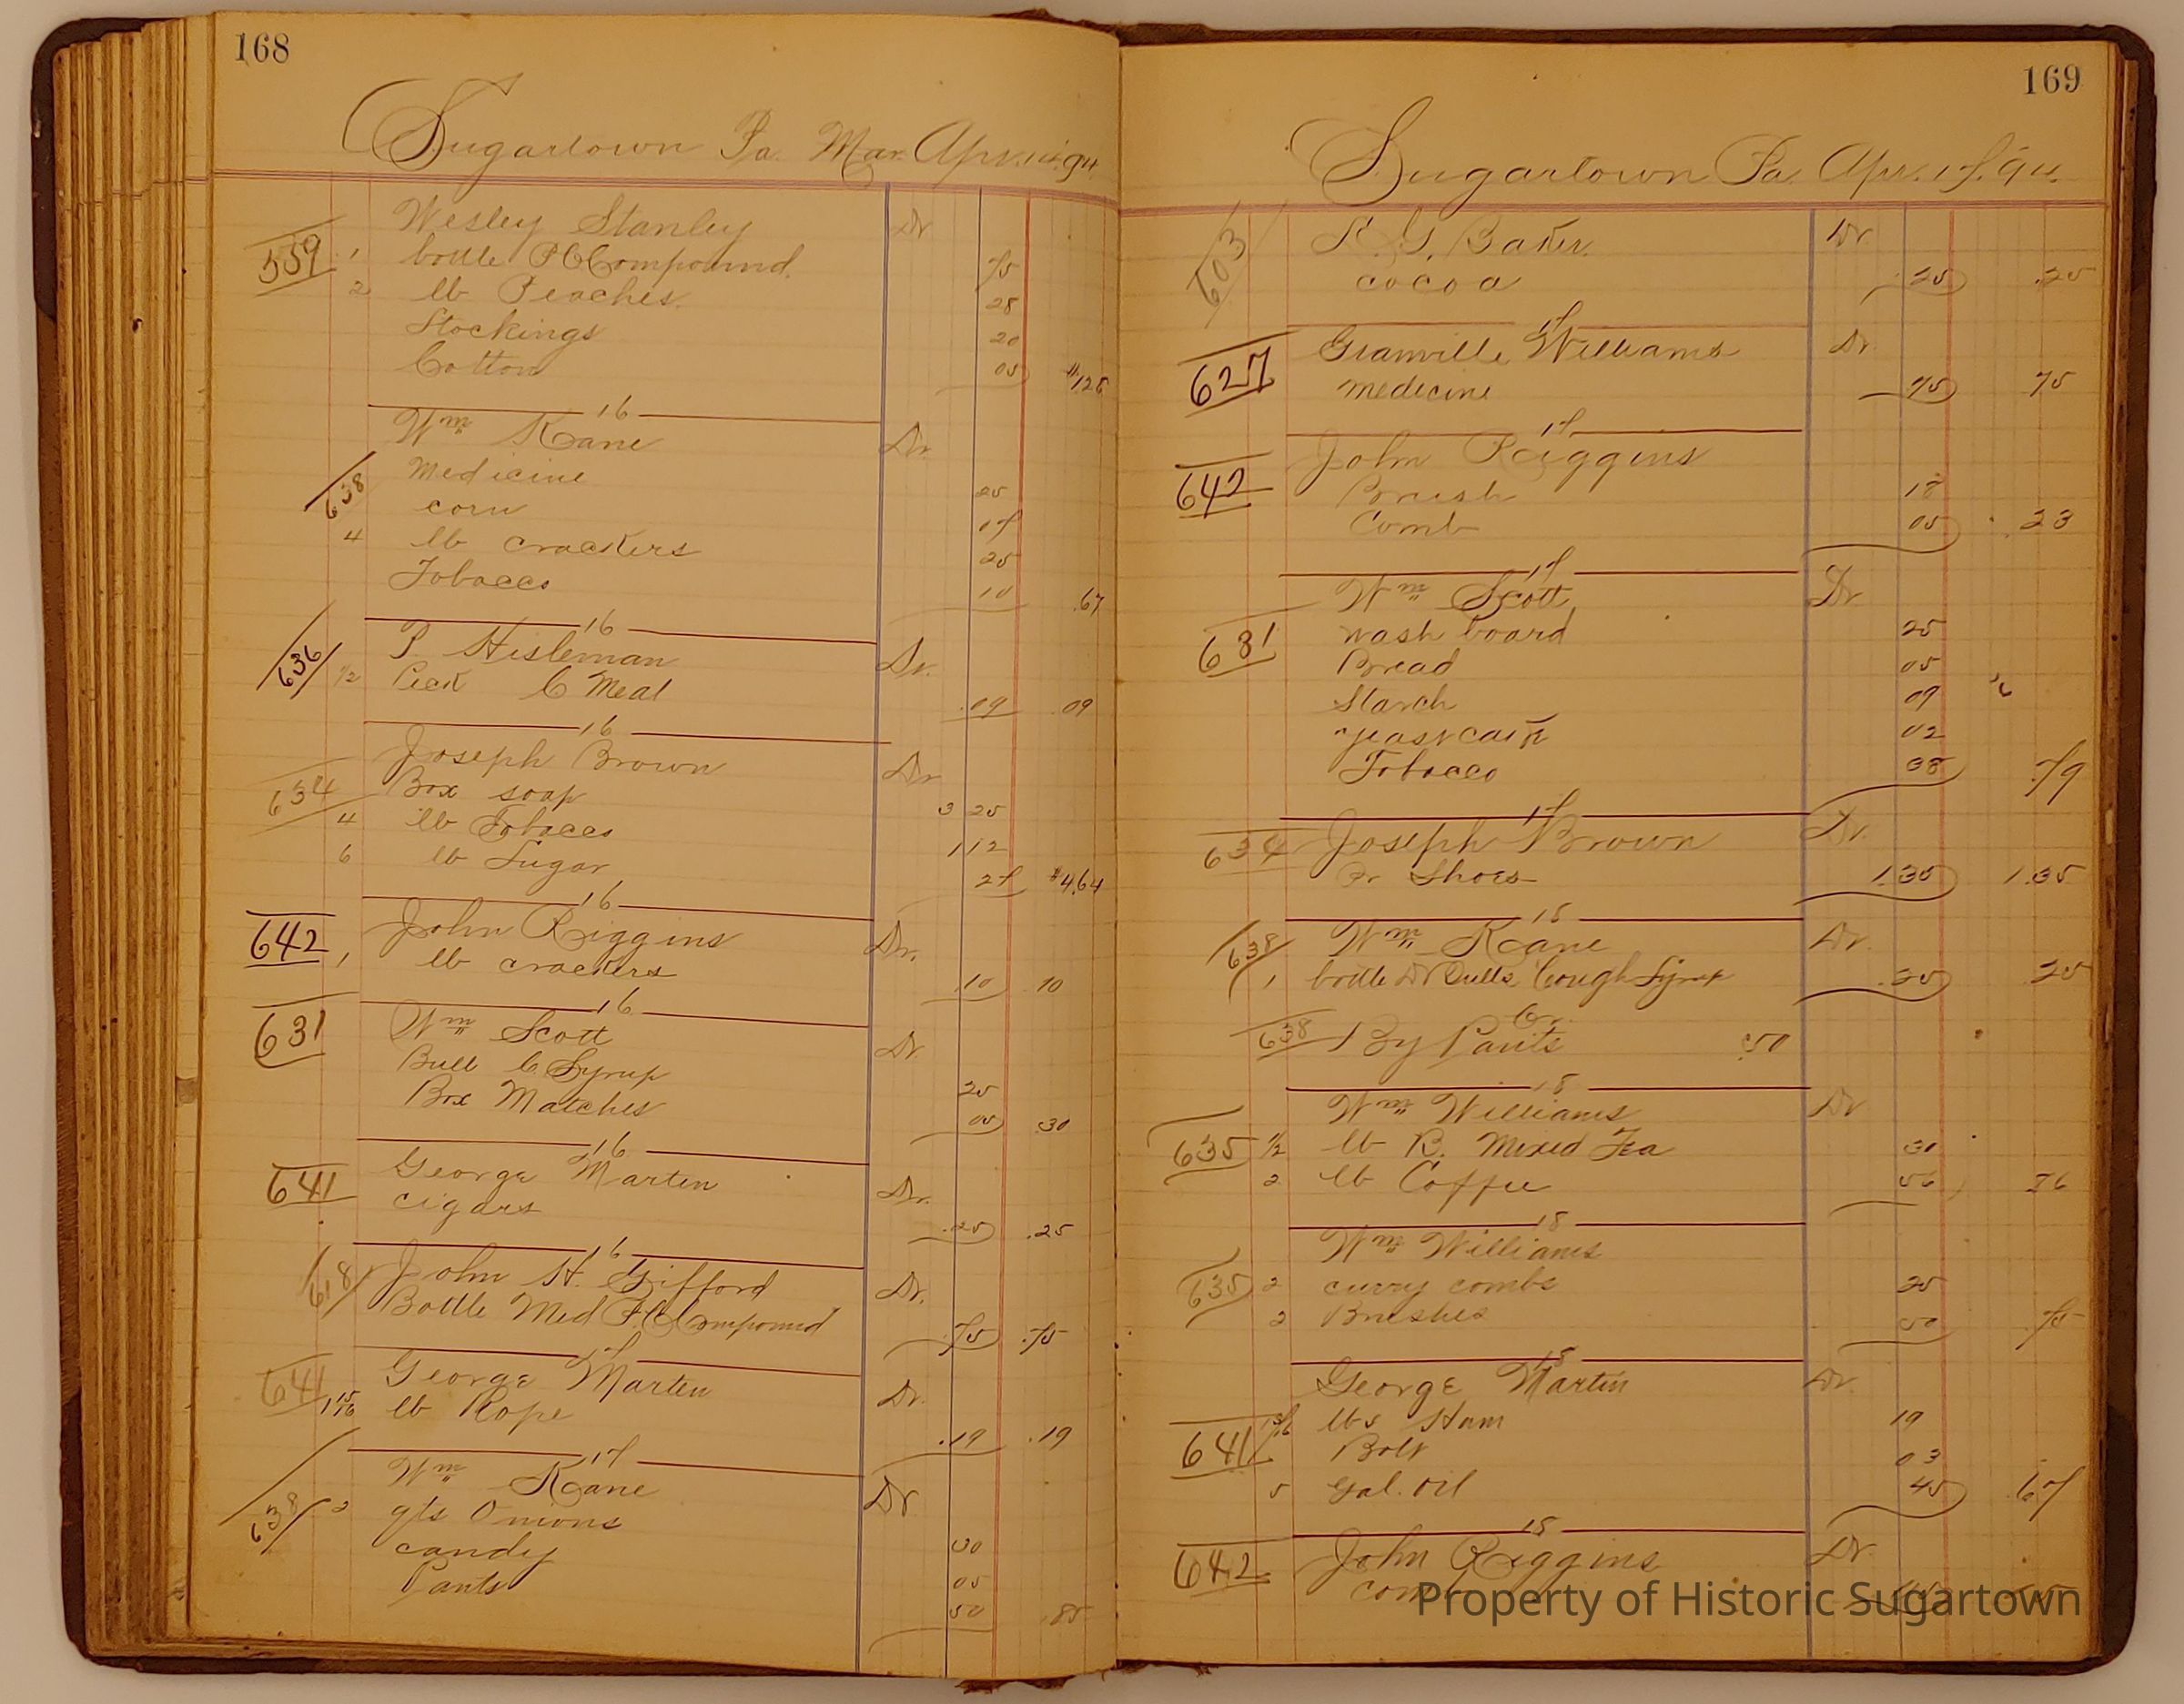 168
Sugartown Pa. Mar. Apr. 16. 94
Wesley Stanley Dr
559 1 bottle P C Compound 75
2 lb Peaches 28
Stockings 20
Cotton 05 $1.28
16
Wm Kane Dr.
638 Medicine 25
corn 17
4 lb crackers 25
Tobacco 10 .67
16
636 P Hisleman Dr.
1/2 Peck C Meal .09 .09
16
Joseph Brown Dr
634 Box soap 3 25
4 lb Tobacco 1 12
6 lb Sugar 27 $4.64
16
642 John Riggins Dr.
1 lb crackers .10 .10
16
631 Wm Scott Dr
Bull C. Syrup 25
Box Matches 05 .30
16
641 George Marten Dr.
cigars .25 .25
16
618 John H. Gifford Dr.
Bottle Med P. C Compound .75 .75
17
641 George Marten Dr.
1 15/16 lb Rope .19 .19
17
Wm Kane Dr
638 2 qts Onions 30
candy 05
Pants 50 .85
169
Sugartown Pa. Apr. 17. 94.
603 S. G. Baker Dr.
cocoa .25 .25
17
Granville Williams Dr.
627 medicine 75 75
17
642 John Riggins
Brush 18
Comb 05 .23
17
Wm Scott Dr
631 wash board 25
Bread 05
Starch 09
yeast cake 02
Tobacco 38 .79
17
634 Joseph Brown Dr.
Pr Shoes 1.35 1.35
18
638 Wm Kane Dr.
1 bottle Dr Bulls Cough Syrup .25 .25
Cr.
638 By Pants .50
18
Wm Williams Dr
635 1/2 lb B. Mixed Tea 30
2 lb Coffee 56 86
18
Wm Williams
635 2 curry combs 25
2 Brushes 50 .75
18
George Martin Dr.
641 lbs Ham 19
Bolt 03
5 Gal. Oil 45 .67
18
642 John Riggins Dr
comb
Property of Historic Sugartown